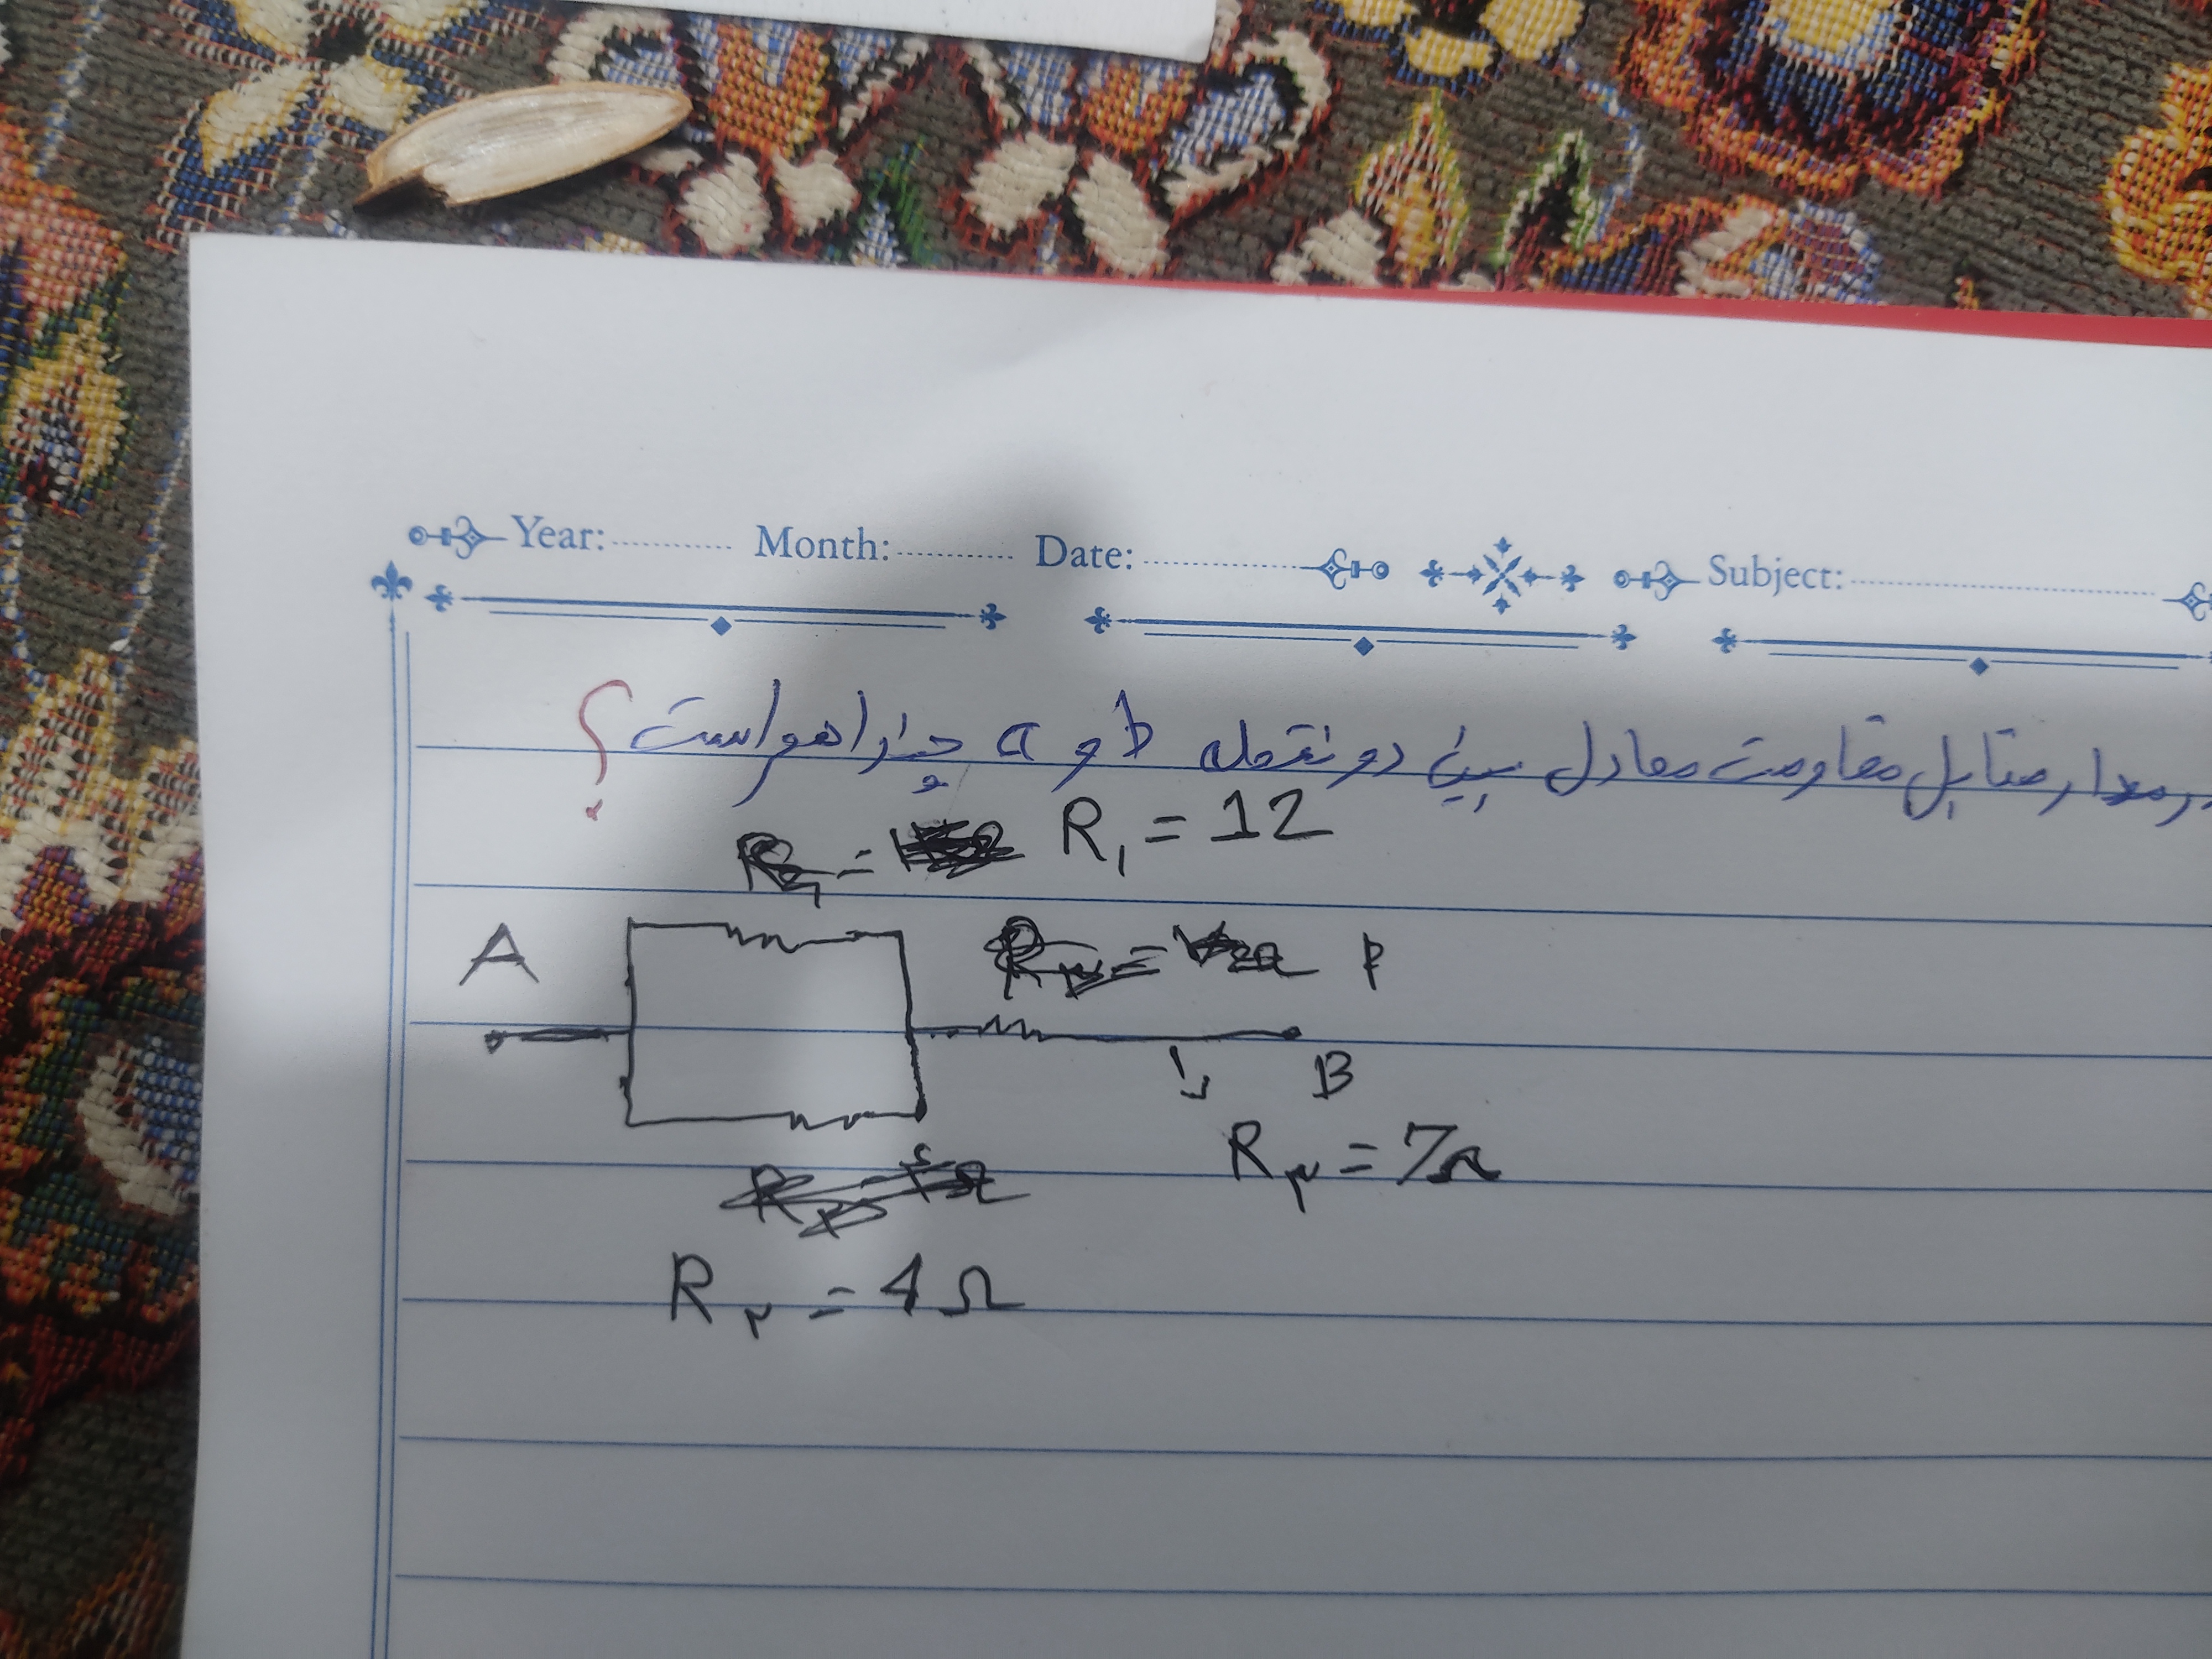 Year: Month: Date: Subject:
در مدار مقابل مقاومت معادل بین دو نقطه b و a چند اهم است؟
R₁ = 12
A
B
R۳ = 7Ω
R۲ = 4Ω